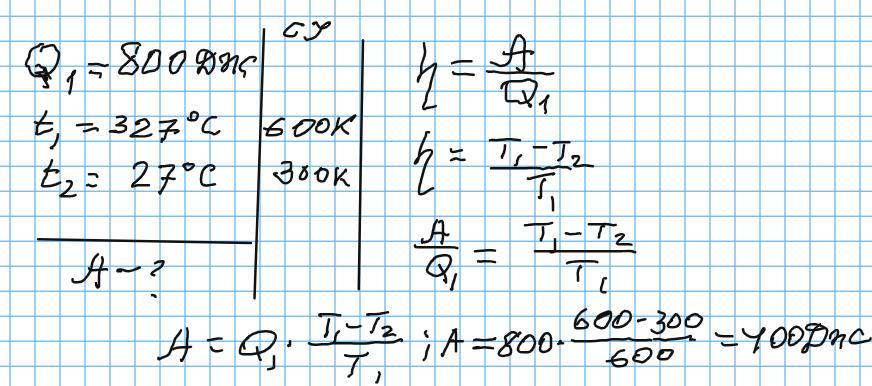 СИ
Q₁ = 800 Дж
t₁ = 327°C 600K
t₂ = 27°C 300K
A - ?
η = A/Q₁
η = (T₁ - T₂)/T₁
A/Q₁ = (T₁ - T₂)/T₁
A = Q₁ · (T₁ - T₂)/T₁ ; A = 800 · (600 - 300)/600 = 400 Дж